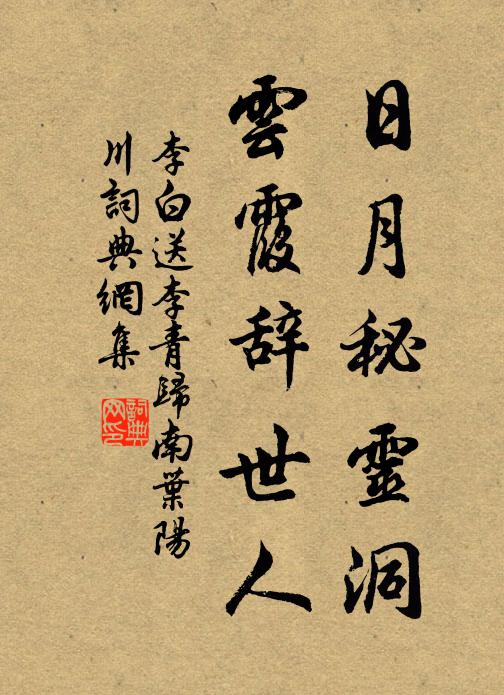 日月秘靈洞
雲霞辞世人
李白送李青歸南葉陽
川詞典網集
詞典网印